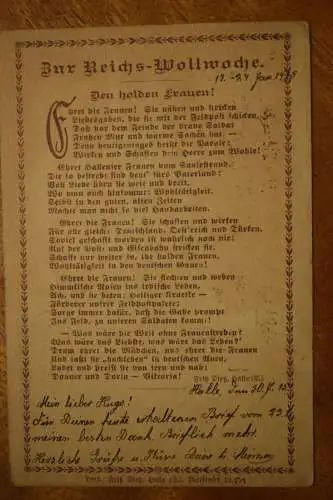 Zur Reichs-Wollwoche.
18.-24. Jan. 1915
Den holden Frauen!
Ehret die Frauen! Sie nähen und stricken
Liebesgaben, die sie mit der Feldpost schicken,
Daß vor dem Feinde der brave Soldat
Frohen Mut und warme Sachen hat. —
Denn heutigentages heißt die Parole:
Wirken und Schaffen dem Heere zum Wohle!
Ehret Hallenser Frauen vom Saalestrand,
Die so bestrebt sind heut' fürs Vaterland:
Voll Liebe üben sie weit und breit,
Wo man auch hinkommt: Wohltätigkeit.
Selbst in den guten, alten Zeiten
Machte man nicht so viel Handarbeiten.
Ehret die Frauen! Sie schaffen und wirken
Für alle gleich: Deutschland, Oest'reich und Türken.
Soviel geschafft worden ist wahrlich noch nie:
Auf der Voll- und Eisenbahn stricken sie.
Schafft nur weiter so, ihr holden Frauen,
Wohltätigkeit in den deutschen Gauen!
Ehret die Frauen! Sie flechten und weben
Himmlische Maschen ins irdische Leben,
Ach, und sie baten: Heiliger Kraetke —
Förderer unsrer Feldpostpakete:
Sorge immer dafür, daß die Gabe prompt
Ins Feld, zu unseren Soldaten kommt!
— Was wäre die Welt ohne Frauenstreben?
Was wäre das Liebste, was wäre das Leben?
Drum ehret die Mädchen, aus ehret die Frauen
Und laßt sie „hochleben" in deutschen Auen,
Lobet und preist sie von fern und nah:
Donner und Doria — Viktoria!
Fritz Dietz, Halle (S.)
Halle, den 30. 1. 15.
Mein lieber Hugo!
Für Deinen heute erhaltenen Brief vom 23.
meinen besten Dank. Brieflich mehr.
Herzliche Grüße u. Küsse Dein
Verl. Fritz Dietz, Halle (S.)